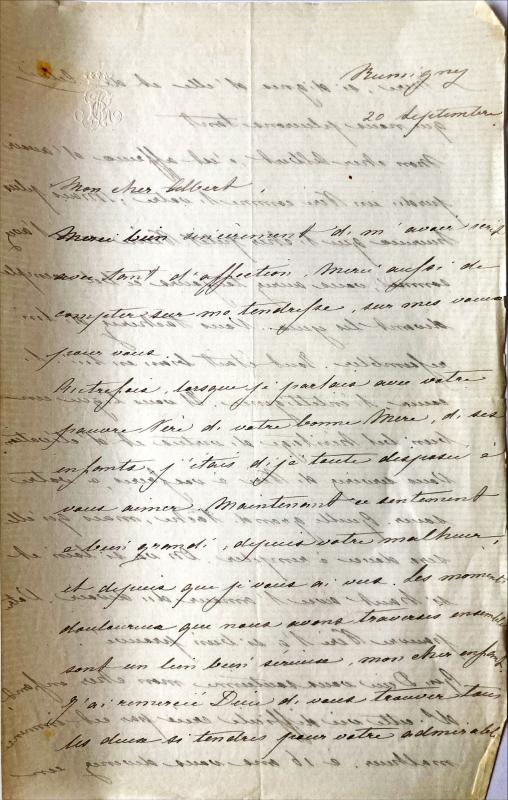 Rumigny
20 Septembre
Mon cher Albert,
Merci bien sincèrement de m'avoir écrit
avec tant d'affection, Merci aussi de
compter sur ma tendresse, sur mes vœux
pour vous.
Autrefois, lorsque je parlais avec votre
pauvre Père de votre bonne Mère, de ses
enfants, j'étais déjà toute disposée à
vous aimer. Maintenant ce sentiment
a bien grandi, depuis votre malheur,
et depuis que je vous ai vus, les moments
douloureux que nous avons traversés ensemble
sont un lien bien sérieux, mon cher enfant,
J'ai remercié Dieu de vous trouver tous
les deux si tendres pour votre admirable